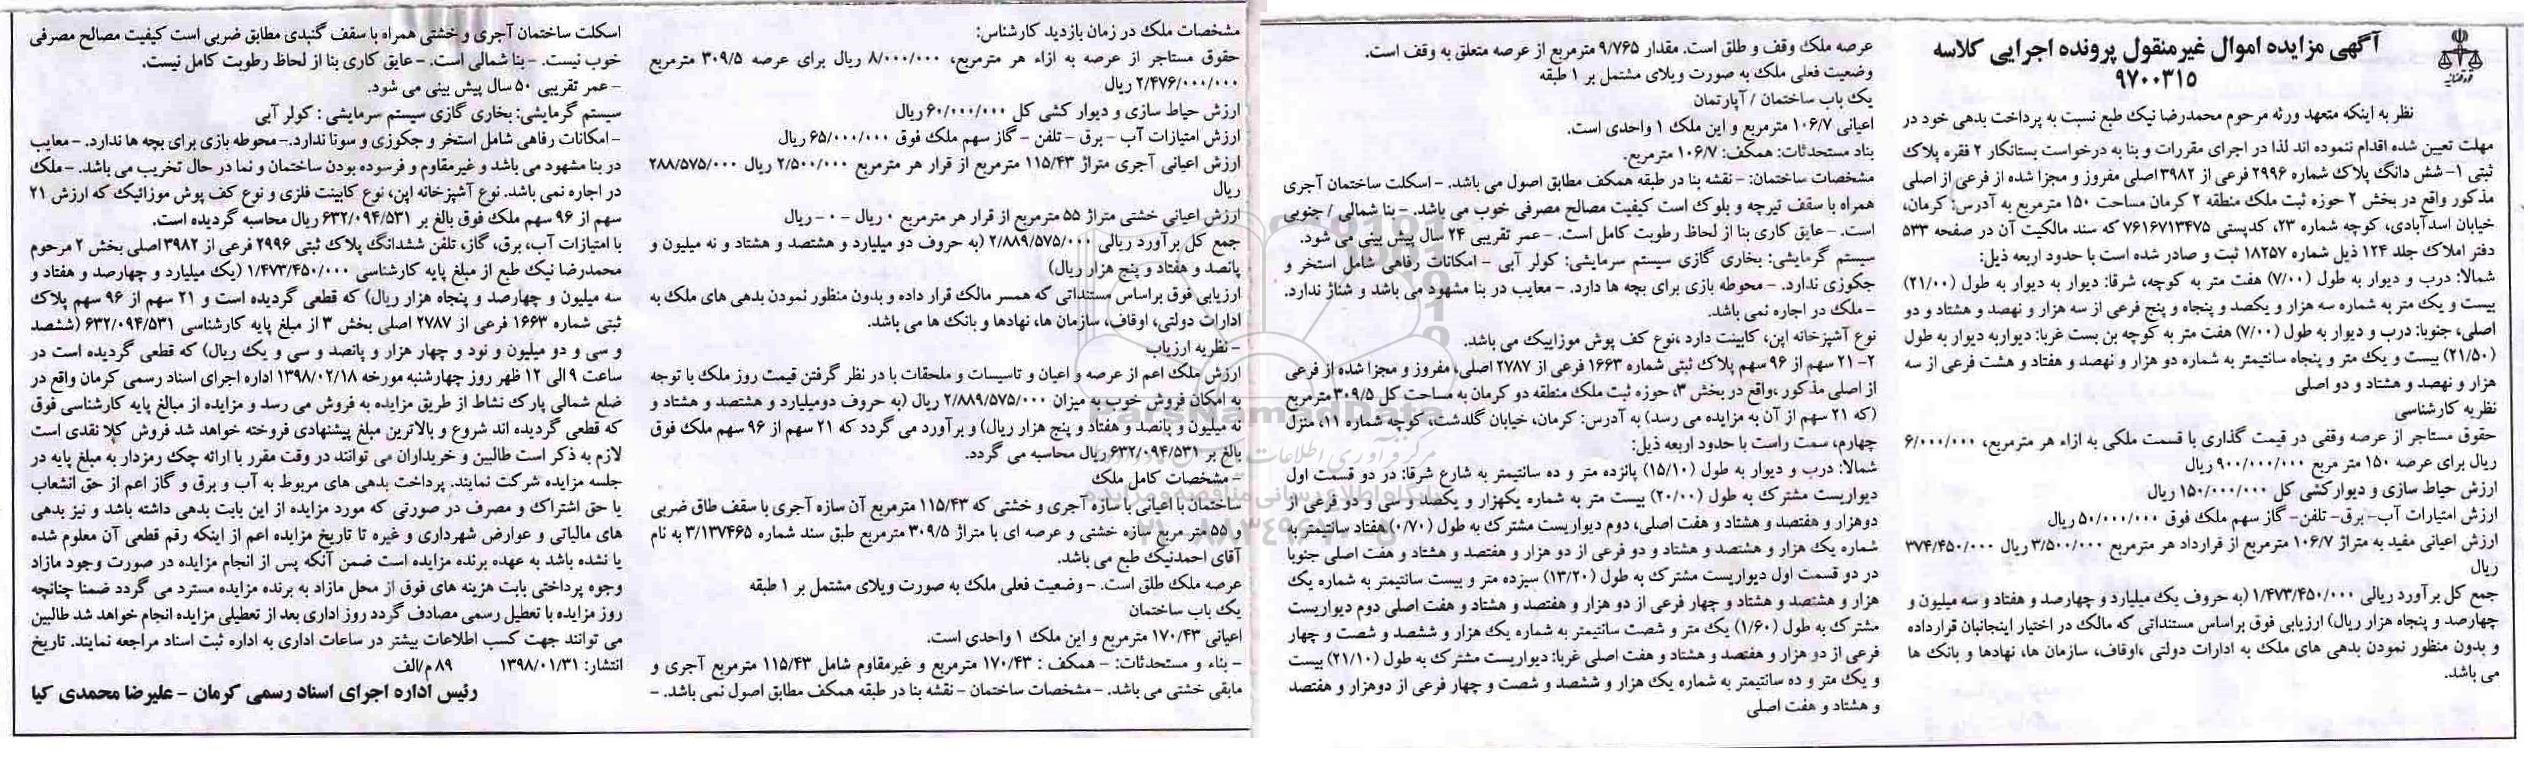 آگهی مزایده اموال غیرمنقول پرونده اجرایی کلاسه
۹۷۰۰۳۱۵
نظر به اینکه متعهد ورثه مرحوم محمدرضا نیک طبع نسبت به پرداخت بدهی خود در
مهلت تعیین شده اقدام ننموده اند لذا در اجرای مقررات و بنا به درخواست بستانکار ۲ فقره پلاک
ثبتی ۱- شش دانگ پلاک شماره ۲۹۹۶ فرعی از ۳۹۸۲ اصلی مفروز و مجزا شده از فرعی از اصلی
مذکور واقع در بخش ۲ حوزه ثبت ملک منطقه ۲ کرمان مساحت ۱۵۰ مترمربع به آدرس: کرمان،
خیابان اسدآبادی، کوچه شماره ۲۳، کدپستی ۷۶۱۶۷۱۳۴۷۵ که سند مالکیت آن در صفحه ۵۳۳
دفتر املاک جلد ۱۲۴ ذیل شماره ۱۸۲۵۷ ثبت و صادر شده است با حدود اربعه ذیل:
شمالا: درب و دیوار به طول (۷/۰۰) هفت متر به کوچه، شرقا: دیوار به دیوار به طول (۲۱/۰۰)
بیست و یک متر به شماره سه هزار و یکصد و پنجاه و پنج فرعی از سه هزار و نهصد و هشتاد و دو
اصلی، جنوبا: درب و دیوار به طول (۷/۰۰) هفت متر به کوچه بن بست غربا: دیواربه دیوار به طول
(۲۱/۵۰) بیست و یک متر و پنجاه سانتیمتر به شماره دو هزار و نهصد و هفتاد و هشت فرعی از سه
هزار و نهصد و هشتاد و دو اصلی
نظریه کارشناسی
حقوق مستاجر از عرصه وقفی در قیمت گذاری با قسمت ملکی به ازاء هر مترمربع، ۶/۰۰۰/۰۰۰
ریال برای عرصه ۱۵۰ متر مربع ۹۰۰/۰۰۰/۰۰۰ ریال
ارزش حیاط سازی و دیوارکشی کل ۱۵۰/۰۰۰/۰۰۰ ریال
ارزش امتیازات آب- برق- تلفن- گاز سهم ملک فوق ۵۰/۰۰۰/۰۰۰ ریال
ارزش اعیانی مفید به متراژ ۱۰۶/۷ مترمربع از قرارداد هر مترمربع ۳/۵۰۰/۰۰۰ ریال ۳۷۴/۴۵۰/۰۰۰
ریال
جمع کل برآورد ریالی ۱/۴۷۳/۴۵۰/۰۰۰ (به حروف یک میلیارد و چهارصد و هفتاد و سه میلیون و
چهارصد و پنجاه هزار ریال) ارزیابی فوق براساس مستنداتی که مالک در اختیار اینجانبان قرارداده
و بدون منظور نمودن بدهی های ملک به ادارات دولتی ،اوقاف، سازمان ها، نهادها و بانک ها
می باشد.
عرصه ملک وقف و طلق است. مقدار ۹/۷۶۵ مترمربع از عرصه متعلق به وقف است.
وضعیت فعلی ملک به صورت ویلای مشتمل بر ۱ طبقه
یک باب ساختمان / آپارتمان
اعیانی ۱۰۶/۷ مترمربع و این ملک ۱ واحدی است.
بناد مستحدثات: همکف: ۱۰۶/۷ مترمربع.
مشخصات ساختمان: - نقشه بنا در طبقه همکف مطابق اصول می باشد. - اسکلت ساختمان آجری
همراه با سقف تیرچه و بلوک است کیفیت مصالح مصرفی خوب می باشد. - بنا شمالی / جنوبی
است. - عایق کاری بنا از لحاظ رطوبت کامل است. - عمر تقریبی ۲۴ سال پیش بینی می شود.
سیستم گرمایشی: بخاری گازی سیستم سرمایشی: کولر آبی - امکانات رفاهی شامل استخر و
جکوزی ندارد. - محوطه بازی برای بچه ها دارد. - معایب در بنا مشهود می باشد و شناژ ندارد.
- ملک در اجاره نمی باشد.
نوع آشپزخانه اپن، کابینت دارد ،نوع کف پوش موزاییک می باشد.
۲- ۲۱ سهم از ۹۶ سهم پلاک ثبتی شماره ۱۶۶۳ فرعی از ۲۷۸۷ اصلی، مفروز و مجزا شده از فرعی
از اصلی مذکور ،واقع در بخش ۳، حوزه ثبت ملک منطقه دو کرمان به مساحت کل ۳۰۹/۵ مترمربع
(که ۲۱ سهم از آن به مزایده می رسد) به آدرس: کرمان، خیابان گلدشت، کوچه شماره ۱۱، منزل
چهارم، سمت راست با حدود اربعه ذیل:
شمالا: درب و دیوار به طول (۱۵/۱۰) پانزده متر و ده سانتیمتر به شارع شرقا: در دو قسمت اول
دیواریست مشترک به طول (۲۰/۰۰) بیست متر به شماره یکهزار و یکصد و سی و دو فرعی از
دوهزار و هفتصد و هشتاد و هفت اصلی، دوم دیواریست مشترک به طول (۰/۷۰) هفتاد سانتیمتر به
شماره یک هزار و هشتصد و هشتاد و دو فرعی از دو هزار و هفتصد و هشتاد و هفت اصلی جنوبا
در دو قسمت اول دیواریست مشترک به طول (۱۳/۲۰) سیزده متر و بیست سانتیمتر به شماره یک
هزار و هشتصد و هشتاد و چهار فرعی از دو هزار و هفتصد و هشتاد و هفت اصلی دوم دیواریست
مشترک به طول (۱/۶۰) یک متر و شصت سانتیمتر به شماره یک هزار و ششصد و شصت و چهار
فرعی از دو هزار و هفتصد و هشتاد و هفت اصلی غربا: دیواریست مشترک به طول (۲۱/۱۰) بیست
و یک متر و ده سانتیمتر به شماره یک هزار و ششصد و شصت و چهار فرعی از دوهزار و هفتصد
و هشتاد و هفت اصلی
مشخصات ملک در زمان بازدید کارشناس:
حقوق مستاجر از عرصه به ازاء هر مترمربع، ۸/۰۰۰/۰۰۰ ریال برای عرصه ۳۰۹/۵ مترمربع
۲/۴۷۶/۰۰۰/۰۰۰ ریال
ارزش حیاط سازی و دیوار کشی کل ۶۰/۰۰۰/۰۰۰ ریال
ارزش امتیازات آب - برق - تلفن - گاز سهم ملک فوق ۶۵/۰۰۰/۰۰۰ ریال
ارزش اعیانی آجری متراژ ۱۱۵/۴۳ مترمربع از قرار هر مترمربع ۲/۵۰۰/۰۰۰ ریال ۲۸۸/۵۷۵/۰۰۰
ریال
ارزش اعیانی خشتی متراژ ۵۵ مترمربع از قرار هر مترمربع ۰ ریال - ۰ - ریال
جمع کل برآورد ریالی ۲/۸۸۹/۵۷۵/۰۰۰ (به حروف دو میلیارد و هشتصد و هشتاد و نه میلیون و
پانصد و هفتاد و پنج هزار ریال)
ارزیابی فوق براساس مستنداتی که همسر مالک قرار داده و بدون منظور نمودن بدهی های ملک به
ادارات دولتی، اوقاف، سازمان ها، نهادها و بانک ها می باشد.
- نظریه ارزیاب
ارزش ملک اعم از عرصه و اعیان و تاسیسات و ملحقات با در نظر گرفتن قیمت روز ملک با توجه
به امکان فروش خوب به میزان ۲/۸۸۹/۵۷۵/۰۰۰ ریال (به حروف دومیلیارد و هشتصد و هشتاد و
نه میلیون و پانصد و هفتاد و پنج هزار ریال) و برآورد می گردد که ۲۱ سهم از ۹۶ سهم ملک فوق
بالغ بر ۶۳۲/۰۹۴/۵۳۱ ریال محاسبه می گردد.
- مشخصات کامل ملک
ساختمان با اعیانی با سازه آجری و خشتی که ۱۱۵/۴۳ مترمربع آن سازه آجری با سقف طاق ضربی
و ۵۵ متر مربع سازه خشتی و عرصه ای با متراژ ۳۰۹/۵ مترمربع طبق سند شماره ۳/۱۳۷۴۶۵ به نام
آقای احمدنیک طبع می باشد.
عرصه ملک طلق است. - وضعیت فعلی ملک به صورت ویلای مشتمل بر ۱ طبقه
یک باب ساختمان
اعیانی ۱۷۰/۴۳ مترمربع و این ملک ۱ واحدی است.
- بناء و مستحدثات: - همکف : ۱۷۰/۴۳ مترمربع و غیرمقاوم شامل ۱۱۵/۴۳ مترمربع آجری و
مابقی خشتی می باشد. - مشخصات ساختمان - نقشه بنا در طبقه همکف مطابق اصول نمی باشد. -
اسکلت ساختمان آجری و خشتی همراه با سقف گنبدی مطابق ضربی است کیفیت مصالح مصرفی
خوب نیست. - بنا شمالی است. - عایق کاری بنا از لحاظ رطوبت کامل نیست.
- عمر تقریبی ۵۰ سال پیش بینی می شود.
سیستم گرمایشی: بخاری گازی سیستم سرمایشی : کولر آبی
- امکانات رفاهی شامل استخر و جکوزی و سونا ندارد.- محوطه بازی برای بچه ها ندارد. - معایب
در بنا مشهود می باشد و غیرمقاوم و فرسوده بودن ساختمان و نما در حال تخریب می باشد. - ملک
در اجاره نمی باشد. نوع آشپزخانه اپن، نوع کابینت فلزی و نوع کف پوش موزائیک که ارزش ۲۱
سهم از ۹۶ سهم ملک فوق بالغ بر ۶۳۲/۰۹۴/۵۳۱ ریال محاسبه گردیده است.
با امتیازات آب، برق، گاز، تلفن ششدانگ پلاک ثبتی ۲۹۹۶ فرعی از ۳۹۸۲ اصلی بخش ۲ مرحوم
محمدرضا نیک طبع از مبلغ پایه کارشناسی ۱/۴۷۳/۴۵۰/۰۰۰ (یک میلیارد و چهارصد و هفتاد و
سه میلیون و چهارصد و پنجاه هزار ریال) که قطعی گردیده است و ۲۱ سهم از ۹۶ سهم پلاک
ثبتی شماره ۱۶۶۳ فرعی از ۲۷۸۷ اصلی بخش ۳ از مبلغ پایه کارشناسی ۶۳۲/۰۹۴/۵۳۱ (ششصد
و سی و دو میلیون و نود و چهار هزار و پانصد و سی و یک ریال) که قطعی گردیده است در
ساعت ۹ الی ۱۲ ظهر روز چهارشنبه مورخه ۱۳۹۸/۰۲/۱۸ اداره اجرای اسناد رسمی کرمان واقع در
ضلع شمالی پارک نشاط از طریق مزایده به فروش می رسد و مزایده از مبالغ پایه کارشناسی فوق
که قطعی گردیده اند شروع و بالاترین مبلغ پیشنهادی فروخته خواهد شد فروش کلا نقدی است
لازم به ذکر است طالبین و خریداران می توانند در وقت مقرر با ارائه چک رمزدار به مبلغ پایه در
جلسه مزایده شرکت نمایند. پرداخت بدهی های مربوط به آب و برق و گاز اعم از حق انشعاب
یا حق اشتراک و مصرف در صورتی که مورد مزایده از این بابت بدهی داشته باشد و نیز بدهی
های مالیاتی و عوارض شهرداری و غیره تا تاریخ مزایده اعم از اینکه رقم قطعی آن معلوم شده
یا نشده باشد به عهده برنده مزایده است ضمن آنکه پس از انجام مزایده در صورت وجود مازاد
وجوه پرداختی بابت هزینه های فوق از محل مازاد به برنده مزایده مسترد می گردد ضمنا چنانچه
روز مزایده با تعطیل رسمی مصادف گردد روز اداری بعد از تعطیلی مزایده انجام خواهد شد طالبین
می توانند جهت کسب اطلاعات بیشتر در ساعات اداری به اداره ثبت اسناد مراجعه نمایند. تاریخ
انتشار: ۱۳۹۸/۰۱/۳۱ ۸۹ م/الف
رئیس اداره اجرای اسناد رسمی کرمان - علیرضا محمدی کیا
ParsNamadData